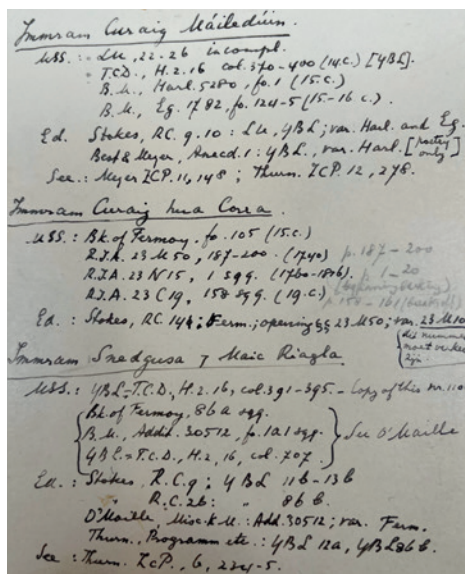 Immram Curaig Máiledúin.
MSS.: LU, 22-26 incompl.
T.C.D., H.2.16 col. 370-400 (14.c.) [YBL].
B.M., Harl. 5280, fo. 1 (15.c.)
B.M., Eg. 1782, fo. 124-5 (15.-16 c.).
Ed. Stokes, RC. 9.10: LU, YBL; var. Harl. and Eg.
Best & Meyer, Anecd. 1: YBL., var. Harl. [poetry only]
See.: Meyer ZCP. 11, 148; Thurn. ZCP. 12, 278.
Immram Curaig hua Corra.
MSS.: Bk. of Fermoy, fo. 105 (15.c.)
R.I.A. 23 M 50, 187-200. (1740) p. 187-200
R.I.A. 23 N 15, 1 sqq. (1760-1816). p. 1-20
R.I.A. 23 C 19, 158 sqq. (19.c.)
p 158-161
Ed.: Stokes, RC. 14; Ferm.; opening §§ 23 M50; var. 23 M10
dit nummer
moet
zijn
Immram Snedgusa 7 Maic Riagla
MSS.: YBL = T.C.D., H.2.16, col. 391-395. - Copy of this
Bk. of Fermoy, 86 a sqq.
B.M., Addit. 30512, fo. 1a1 sqq. See O'Maille
YBL = T.C.D., H.2.16, col. 707.
Ed.: Stokes, R.C. 9; YBL 11b-13b
" R.C. 26: " 86 b.
O'Maille, Misc. K.M.: Add. 30512; var. Ferm.
Thurn., Programm etc.: YBL 12a, YBL 86 b.
See: Thurn. ZCP., 6, 224-5.